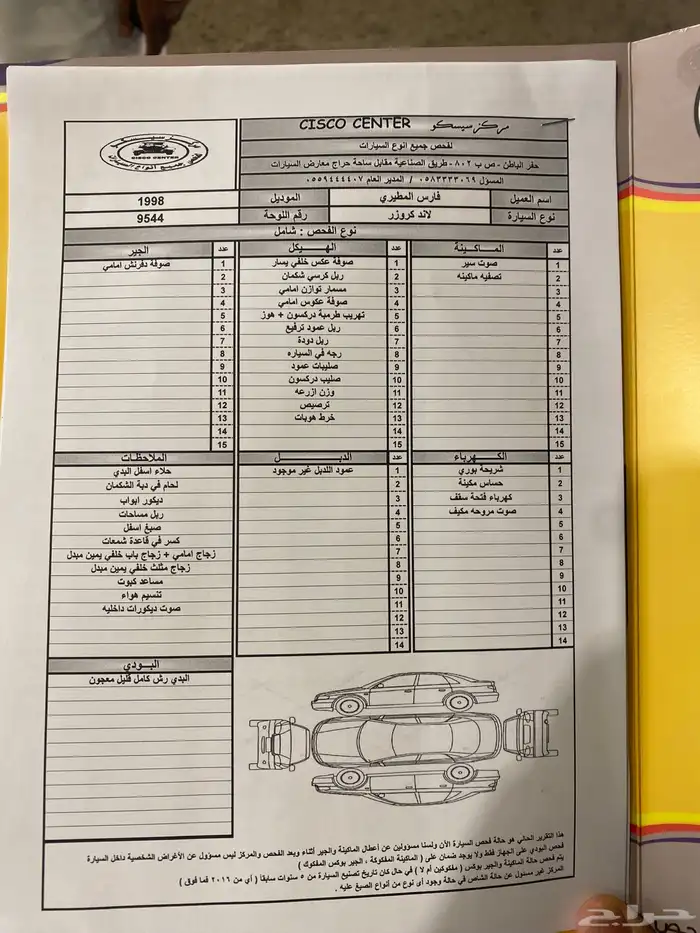 CISCO CENTER مركز سيسكو
لفحص جميع أنوع السيارات
حفر الباطن - ص ب ٨٠٢ - طريق الصناعية مقابل ساحة حراج معارض السيارات
المسؤل ٠٥٨٣٣٣٣٠٦٩ / المدير العام ٠٥٥٩٤٤٤٤٠٧
CISCO CENTER
اسم العميل فارس المطيري الموديل 1998
نوع السيارة لاند كروزر رقم اللوحة 9544
نوع الفحص : شامل
عدد المـــاكـينة
1 صوت سير
2 تصفيه ماكينه
3
4
5
6
7
8
9
10
11
12
13
14
15
عدد الهـــيكل
1 صوفة عكس خلفي يسار
2 ربل كرسي شكمان
3 مسمار توازن امامي
4 صوفة عكوس امامي
5 تهريب طرمبة دركسون + هوز
6 ربل عمود ترفيع
7 ربل دودة
8 رجه في السياره
9 صليبات عمود
10 صليب دركسون
11 وزن ازرعه
12 ترصيص
13 خرط هوبات
14
15
عدد الجير
1 صوفة دفرنش امامي
2
3
4
5
6
7
8
9
10
11
12
13
14
15
عدد الكـــهرباء
1 شريحة بوري
2 حساس مكينة
3 كهرباء فتحة سقف
4 صوت مروحه مكيف
5
6
7
8
9
10
11
12
13
14
عدد الدبـــل
1 عمود اللدبل غير موجود
2
3
4
5
6
7
8
9
10
11
12
13
14
الملاحظـات
حلاء اسفل البدي
لحام في دبة الشكمان
ديكور ابواب
ربل مساحات
صبغ اسفل
كسر في قاعدة شمعات
زجاج امامي + زجاج باب خلفي يمين مبدل
زجاج مثلث خلفي يمين مبدل
مساعد كبوت
تنسيم هواء
صوت ديكورات داخليه
البـــودي
البدي رش كامل قليل معجون
هذا التقرير الحالي هو حالة فحص السيارة الأن ولسنا مسؤولين عن أعطال الماكينة والجير أثناء وبعد الفحص والمركز ليس مسؤول عن الأغراض الشخصية داخل السيارة
فحص البودي على الجهاز فقط ولا يوجد ضمان على ( الماكينة المفكوكة ، الجير بوكس المفكوك )
يتم فحص حالة الماكينة والجير بوكس ( مفكوكين أم لا ) في حال كان تاريخ تصنيع السيارة من ٥ سنوات سابقاً ( أي من ٢٠١٦ فما فوق )
المركز غير مسئول عن حالة الشاص في حالة وجود أي نوع من أنواع الصبغ عليه .
حراج